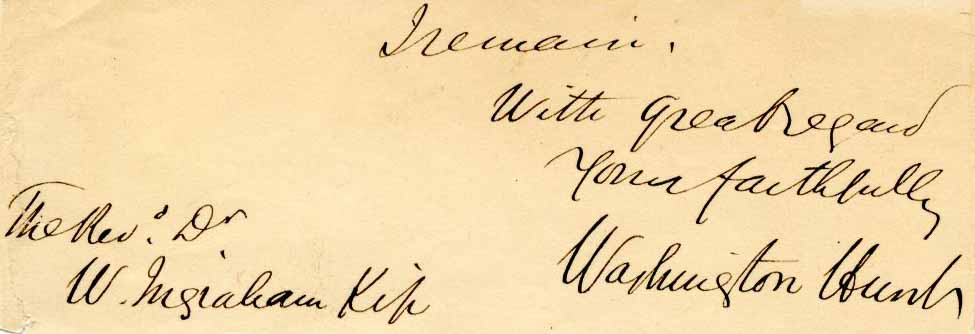 I remain.
With great regard
Yours faithfully
Washington Hunt
The Revd. Dr
W. Ingraham Kip